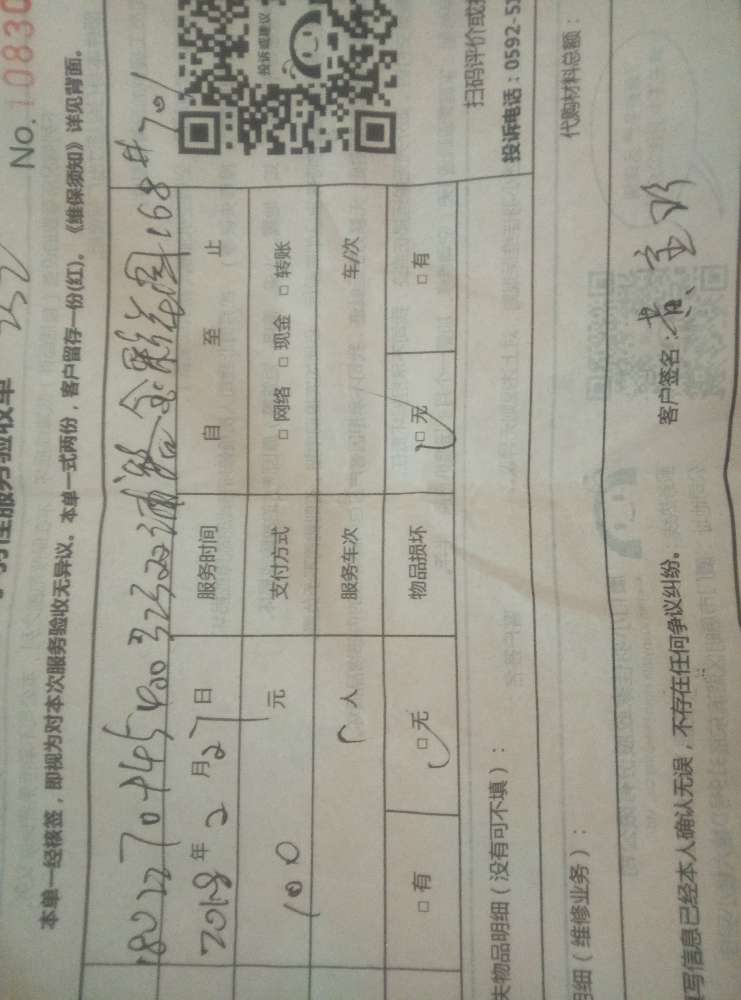 服务验收单
No.10830
本单一经核签，即视为对本次服务验收无异议。本单一式两份，客户留存一份(红)。《维保须知》详见背面。
金彩花园168#701
2018年2月27日
服务时间
自 至 止
100元
支付方式
□网络 □现金 □转账
人
服务车次
车/次
□有 □无
物品损坏
□无 □有
投诉或建议
扫码评价或
投诉电话：0592-5
失物品明细（没有可不填）：
明细（维修业务）：
代购材料总额：
写信息已经本人确认无误，不存在任何争议纠纷。
客户签名：黄